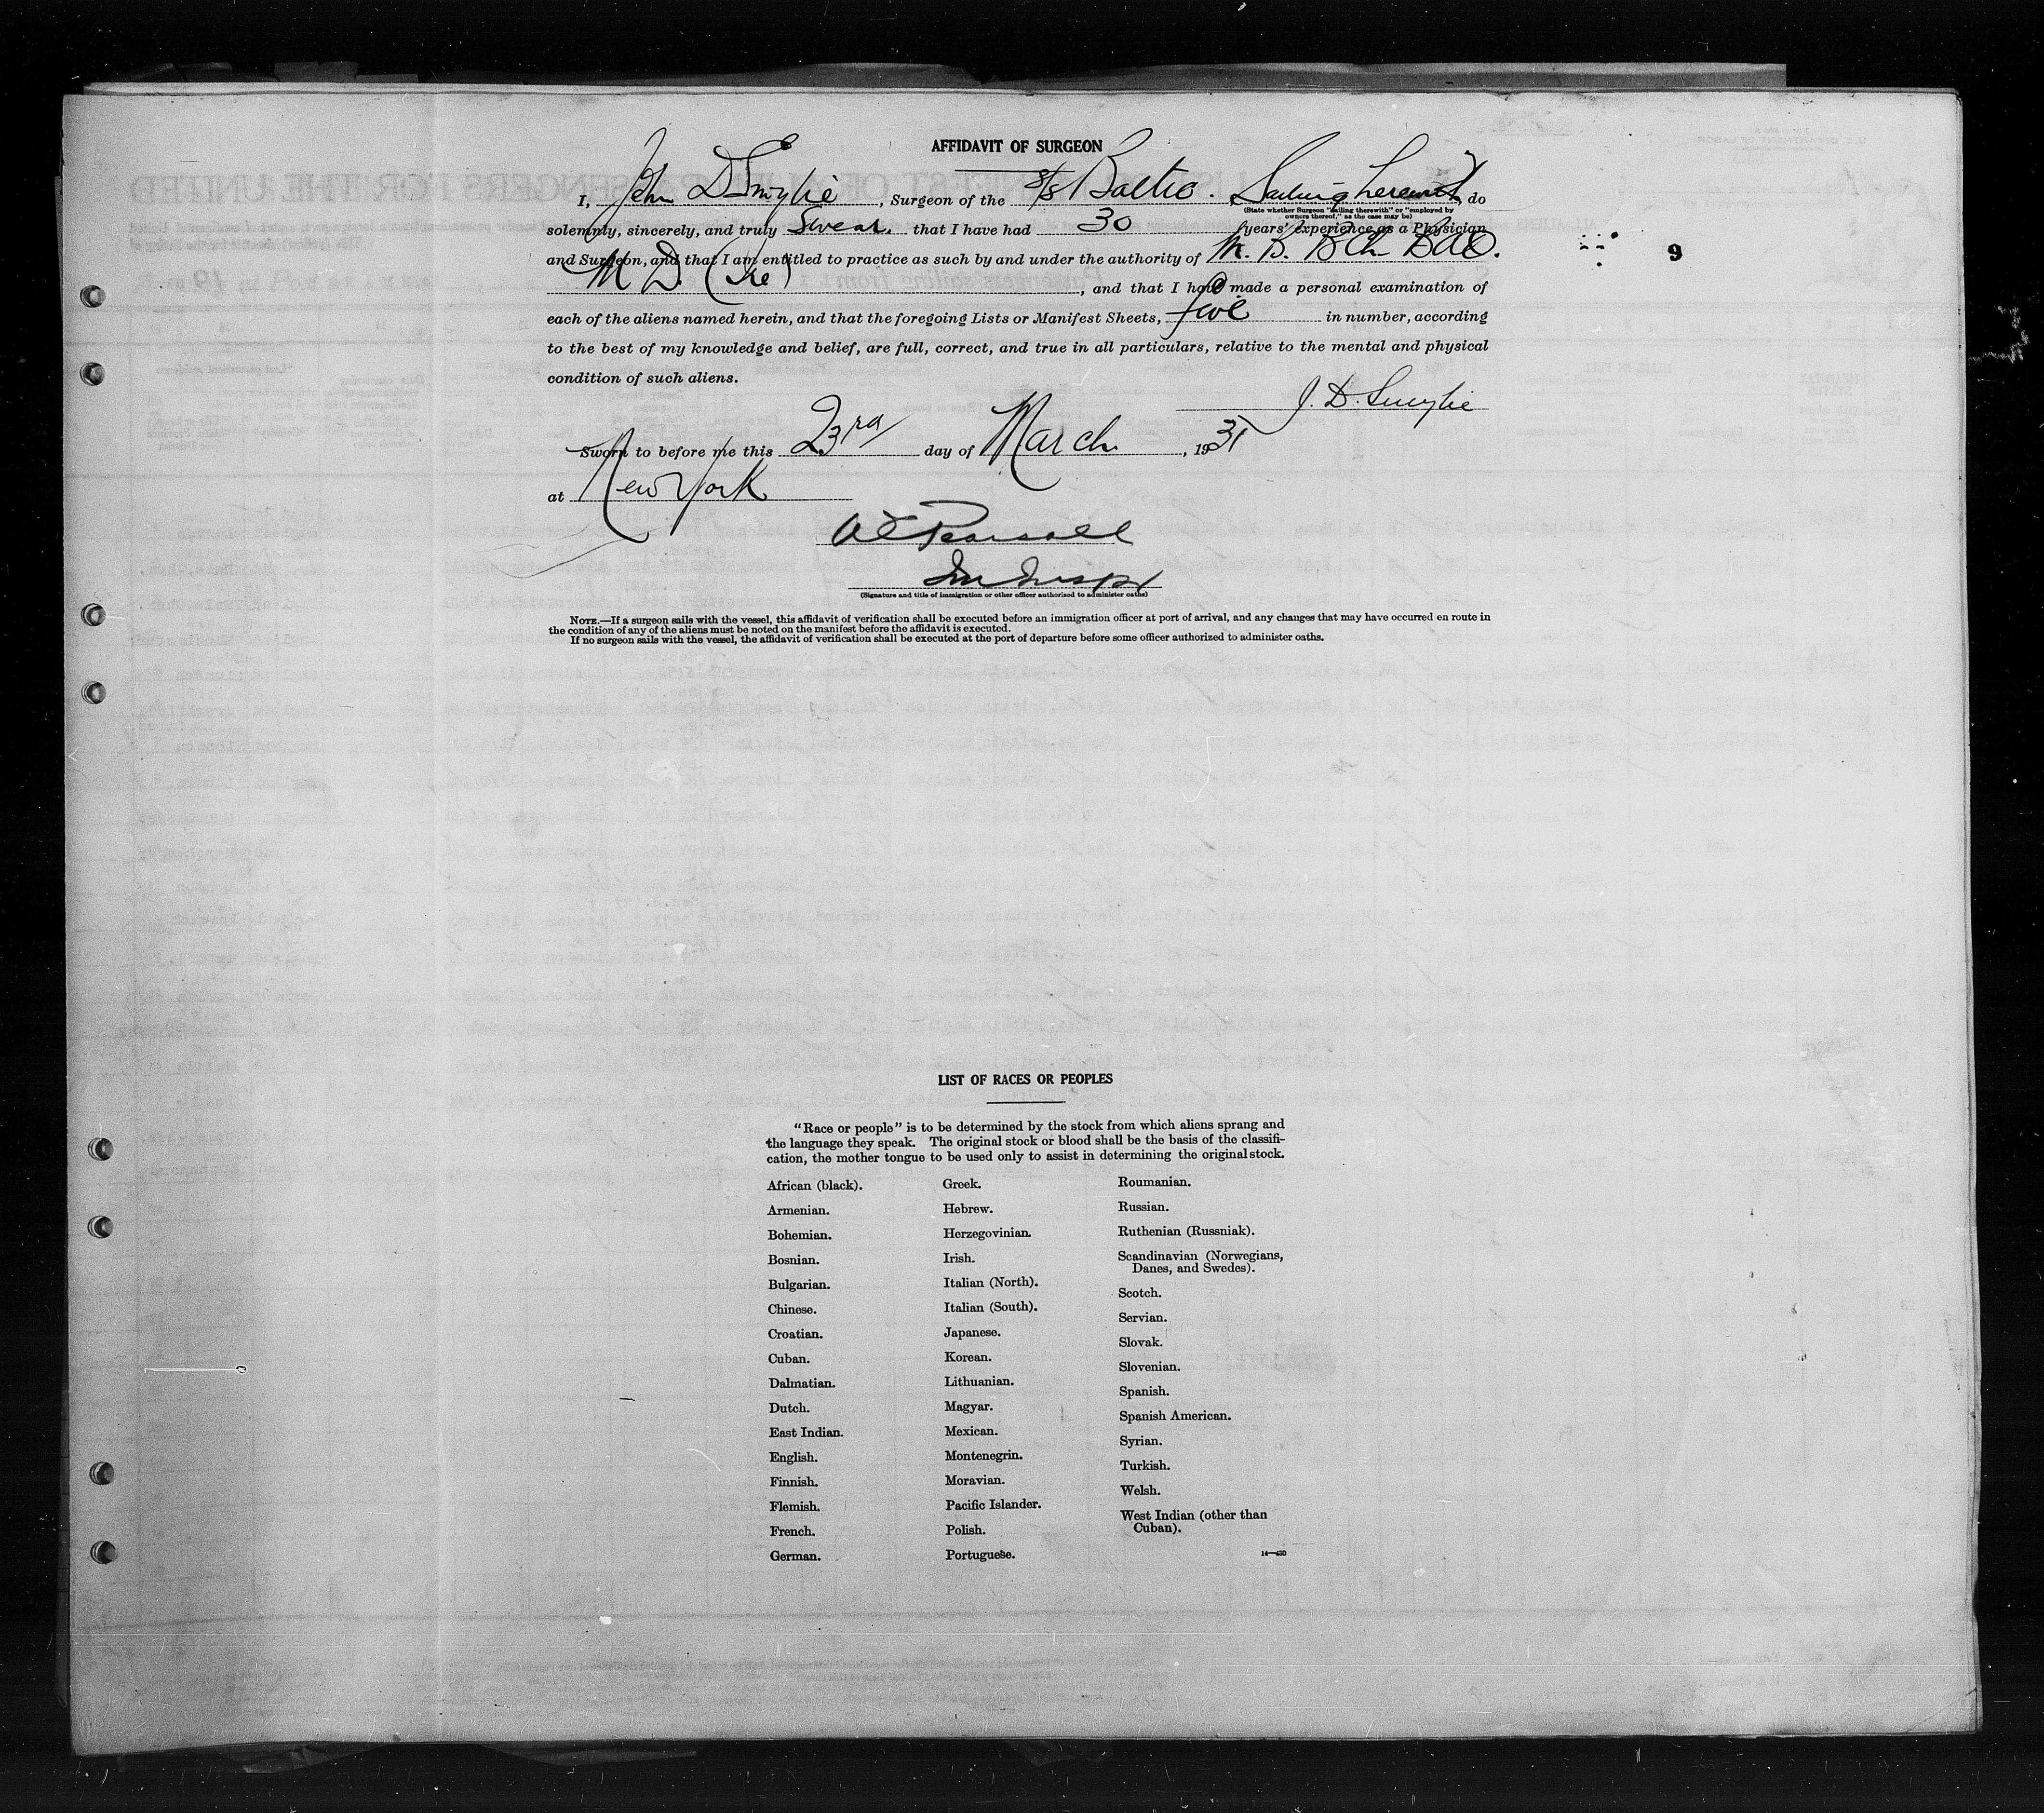 AFFIDAVIT OF SURGEON
I, John D Smylie, Surgeon of the s/s Baltic. Sailing herewith, do
(State whether Surgeon "sailing therewith" or "employed by
owners thereof," as the case may be)
solemnly, sincerely, and truly Swear. that I have had 30 years' experience as a Physician
and Surgeon, and that I am entitled to practice as such by and under the authority of M. B. B Ch BAO.
M. D. (Ire), and that I have made a personal examination of
each of the aliens named herein, and that the foregoing Lists or Manifest Sheets, five in number, according
to the best of my knowledge and belief, are full, correct, and true in all particulars, relative to the mental and physical
condition of such aliens.
J. D. Smylie
Sworn to before me this 23rd day of March, 1931
at New York
Pearsall
Im Inspr
(Signature and title of immigration or other officer authorized to administer oaths)
NOTE.—If a surgeon sails with the vessel, this affidavit of verification shall be executed before an immigration officer at port of arrival, and any changes that may have occurred en route in
the condition of any of the aliens must be noted on the manifest before the affidavit is executed.
If no surgeon sails with the vessel, the affidavit of verification shall be executed at the port of departure before some officer authorized to administer oaths.
9
LIST OF RACES OR PEOPLES
"Race or people" is to be determined by the stock from which aliens sprang and
the language they speak. The original stock or blood shall be the basis of the classifi-
cation, the mother tongue to be used only to assist in determining the original stock.
African (black).
Armenian.
Bohemian.
Bosnian.
Bulgarian.
Chinese.
Croatian.
Cuban.
Dalmatian.
Dutch.
East Indian.
English.
Finnish.
Flemish.
French.
German.
Greek.
Hebrew.
Herzegovinian.
Irish.
Italian (North).
Italian (South).
Japanese.
Korean.
Lithuanian.
Magyar.
Mexican.
Montenegrin.
Moravian.
Pacific Islander.
Polish.
Portuguese.
Roumanian.
Russian.
Ruthenian (Russniak).
Scandinavian (Norwegians,
Danes, and Swedes).
Scotch.
Servian.
Slovak.
Slovenian.
Spanish.
Spanish American.
Syrian.
Turkish.
Welsh.
West Indian (other than
Cuban).